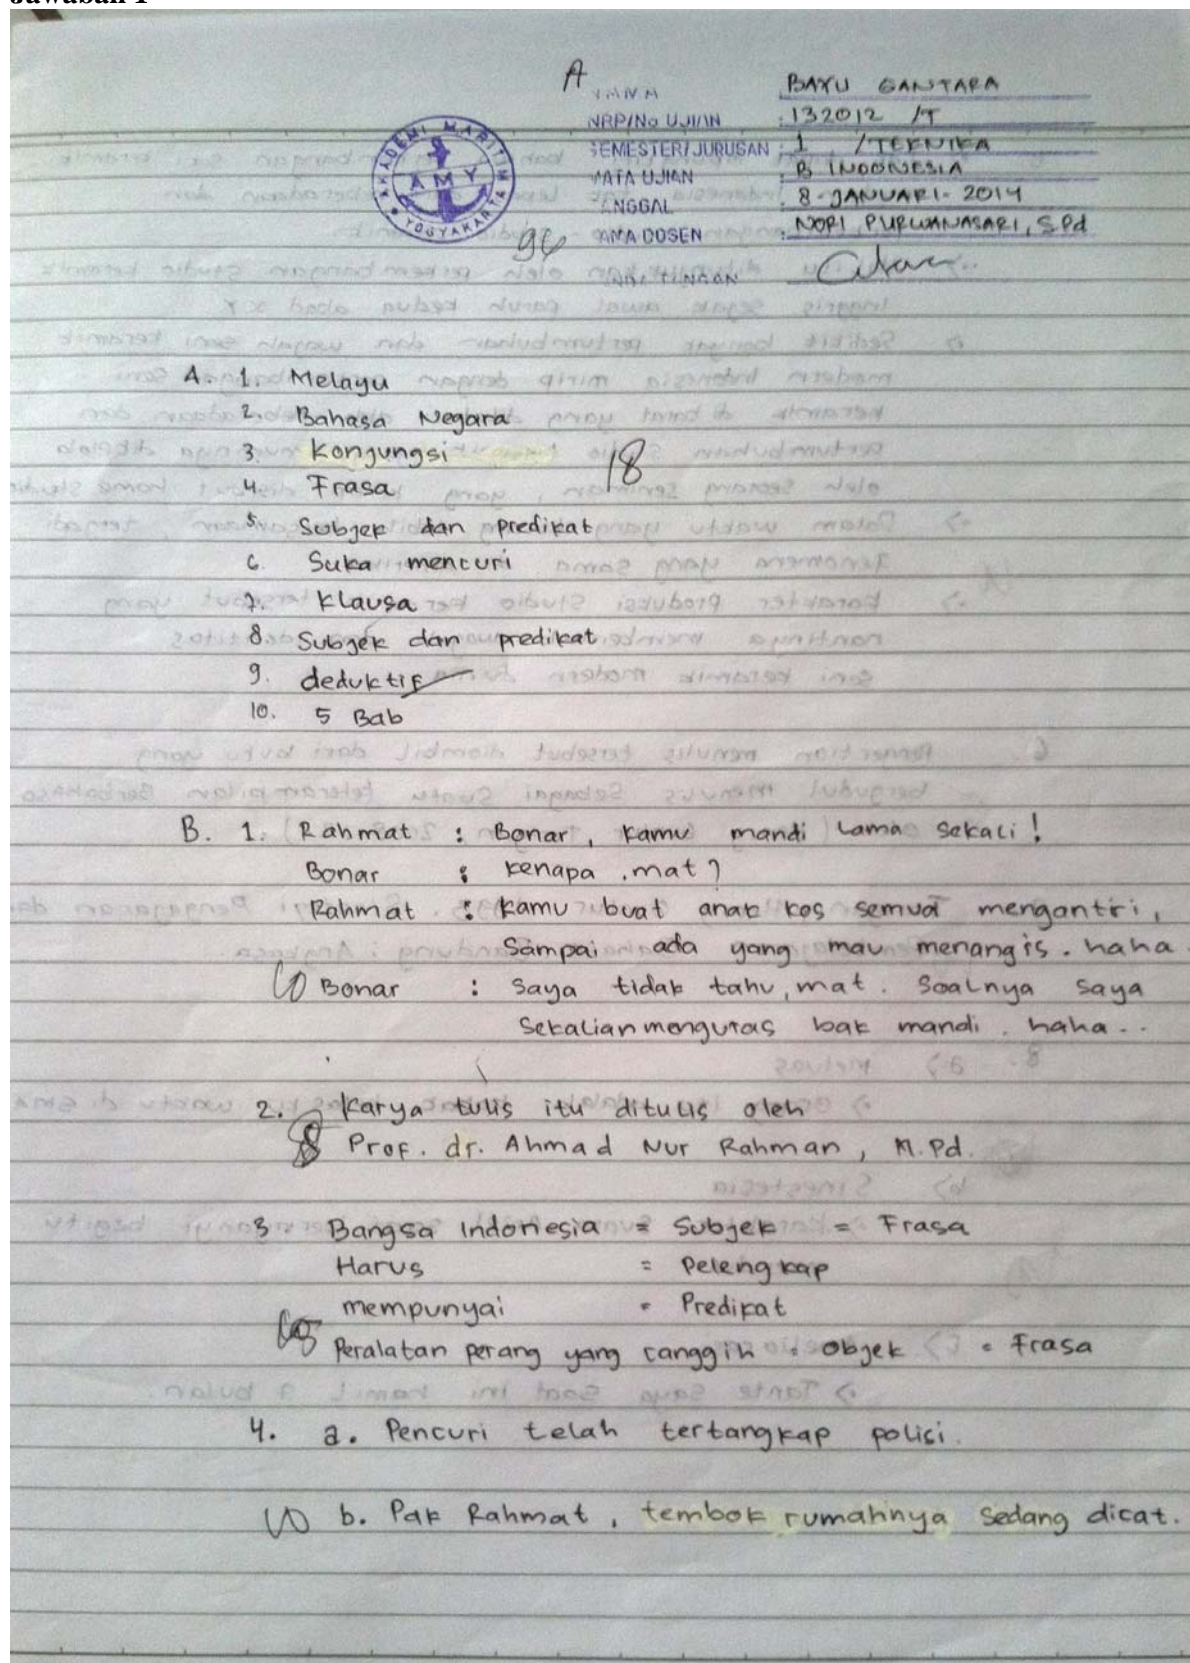 Jawaban 1
A
NAMA BAYU GANTARA
NRP/No UJIAN : 132012 /T
SEMESTER/JURUSAN : 1 /TEKNIKA
MATA UJIAN : B INDONESIA
TANGGAL : 8-JANUARI-2014
NAMA DOSEN : NORI PURWANASARI, S.Pd
AKADEMI MARITIM YOGYAKARTA
AMY
96
A. 1. Melayu
2. Bahasa Negara
3. Kongungsi
18
4. Frasa
5. Subjek dan predikat
6. Suka mencuri
7. Klausa
8. Subjek dan predikat
9. deduktif
10. 5 Bab
B. 1. Rahmat : Bonar, kamu mandi lama sekali!
Bonar : kenapa, mat?
Rahmat : kamu buat anak kos semua mengantri,
Sampai ada yang mau menangis. haha
10 Bonar : Saya tidak tahu, mat. Soalnya saya
Sekalian menguras bak mandi. haha..
2. Karya tulis itu ditulis oleh
8 Prof. dr. Ahmad Nur Rahman, M.Pd.
3. Bangsa Indonesia = Subjek = Frasa
Harus = Pelengkap
mempunyai = Predikat
Peralatan perang yang canggih = objek = Frasa
4. a. Pencuri telah tertangkap polisi.
10 b. Pak Rahmat, tembok rumahnya sedang dicat.